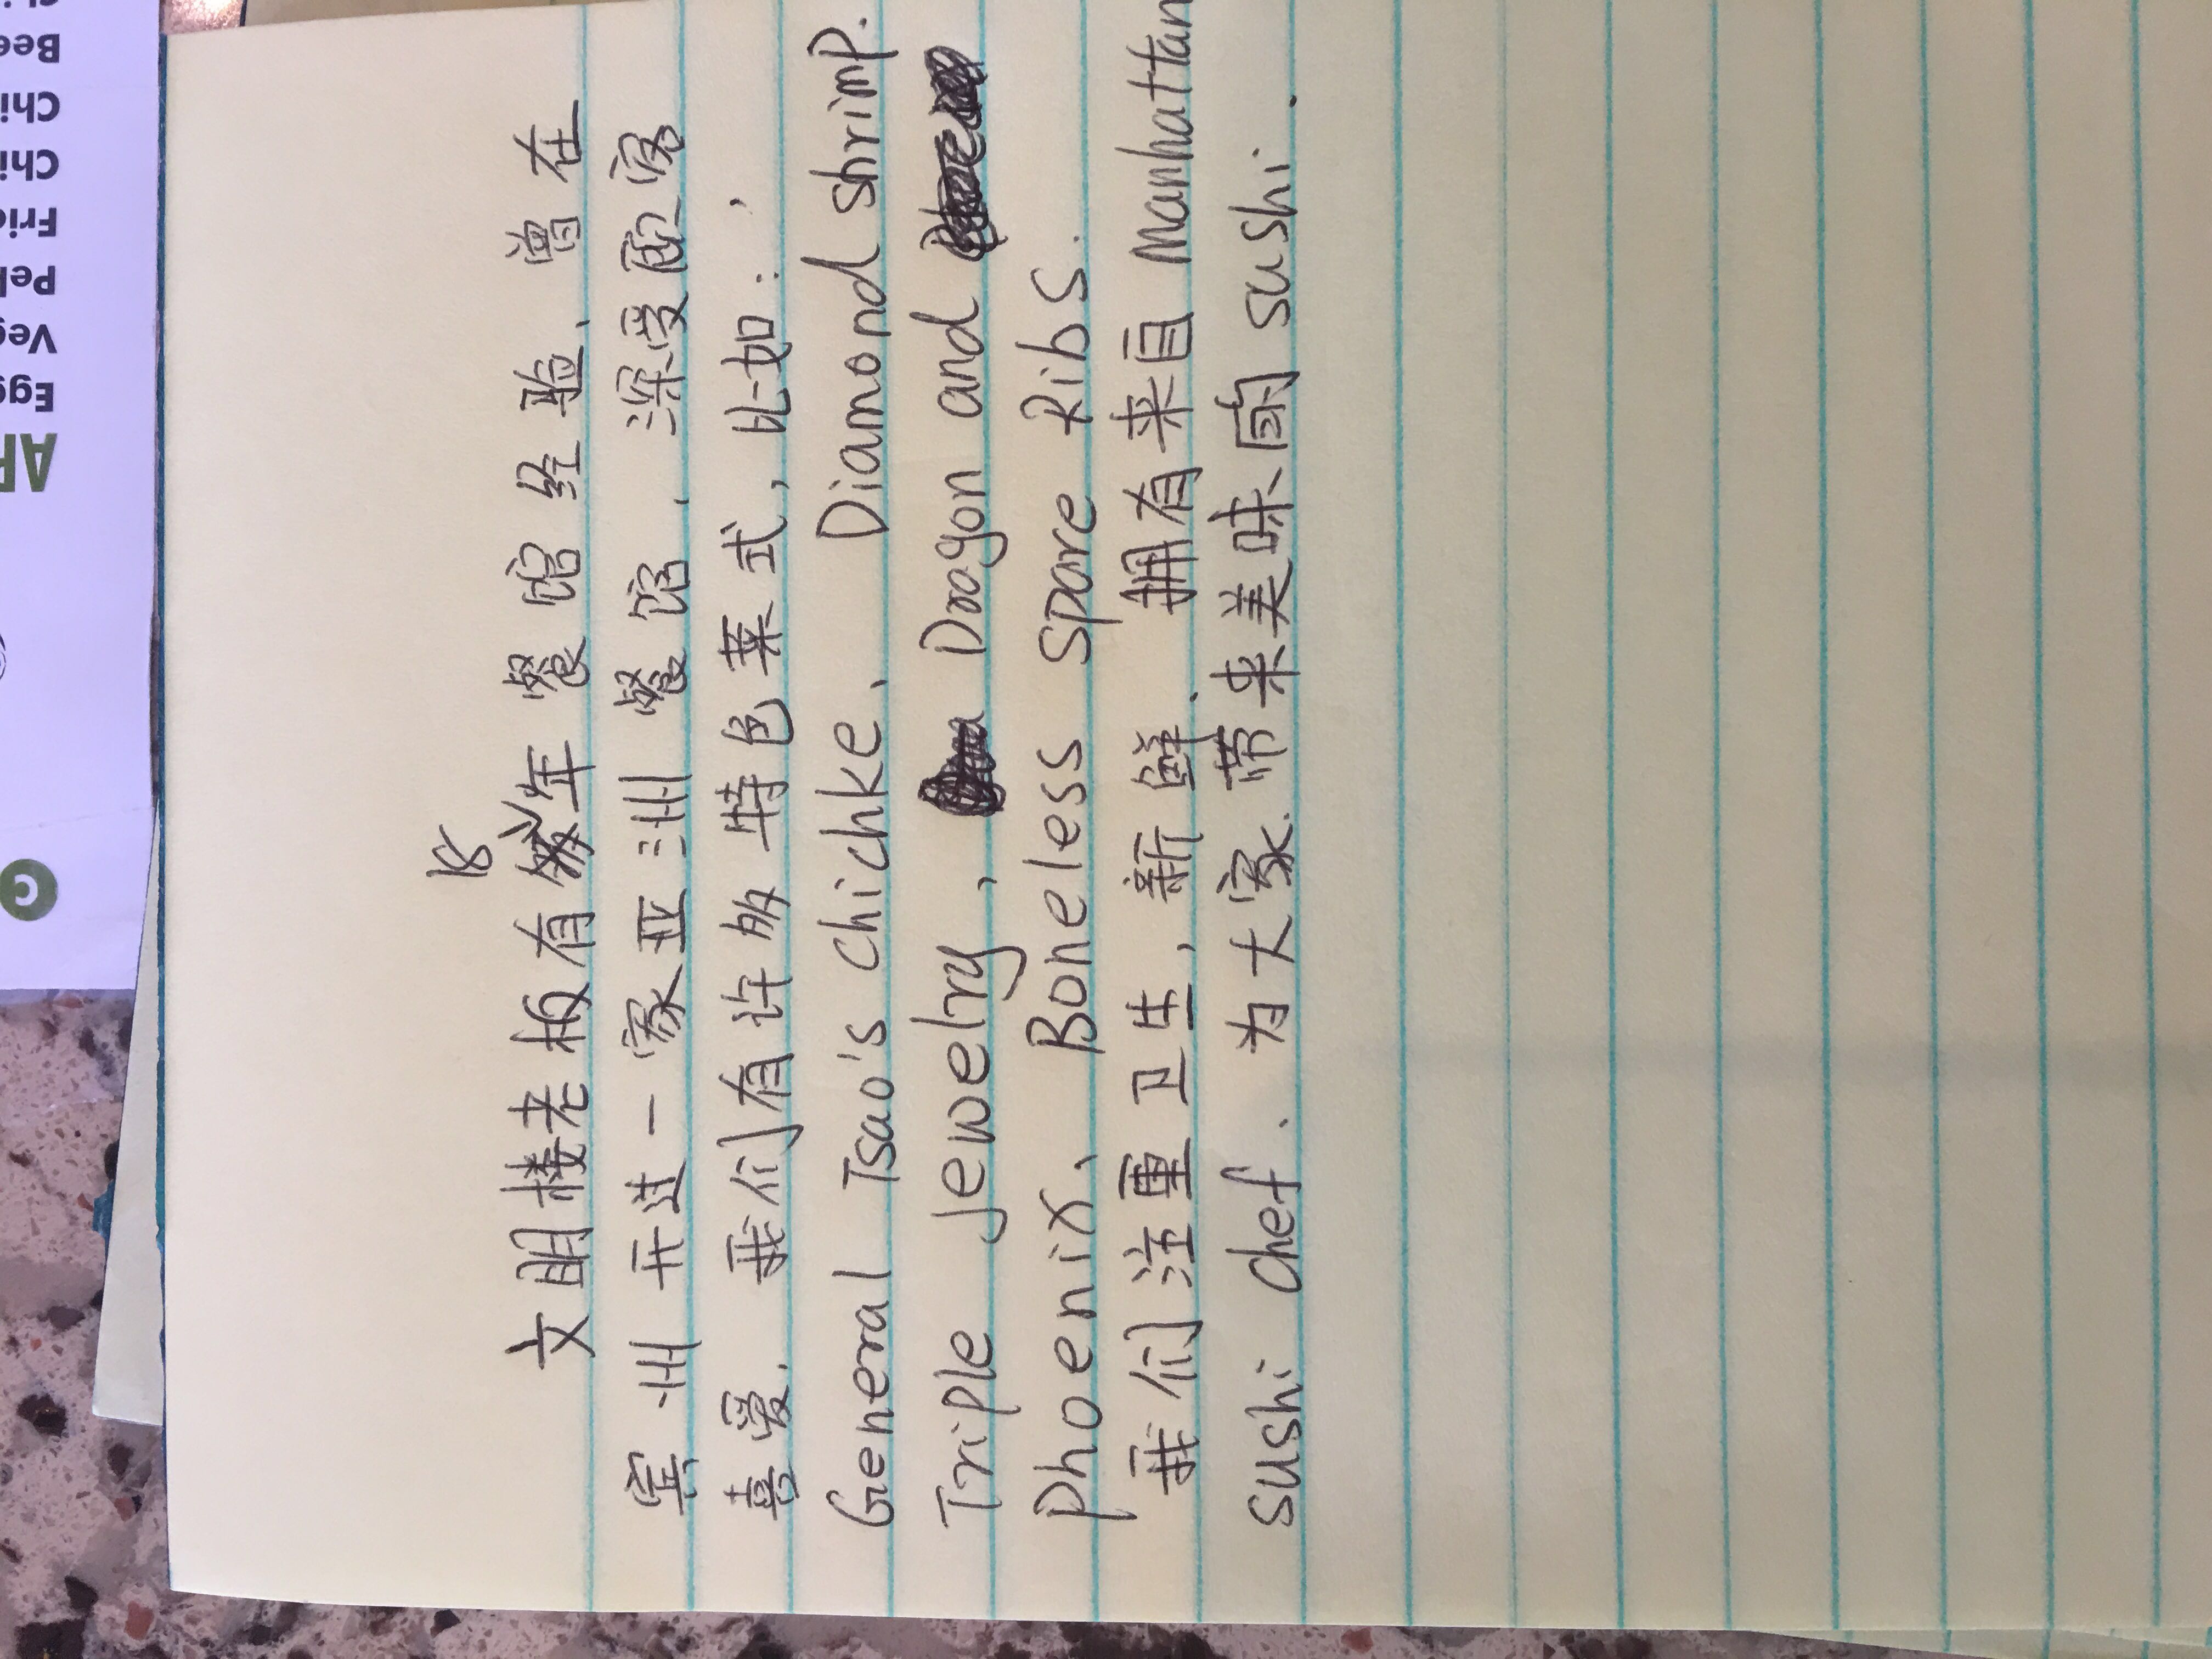 AP
Egg
Veg
Pek
Frie
Chi
Chi
Bee
18
文明楼老板有年餐馆经验、曾在
宾州开过一家亚洲餐馆，深受顾客
喜爱，我们有许多特色菜式，比如：
General Tsao's Chichke、 Diamond shrimp.
Triple Jewelry, Dragon and
Phoenix、 Boneless Spare Ribs.
我们注重卫生，新鲜、拥有来自 Manhattan
sushi chef. 为大家.带来美味的 sushi.